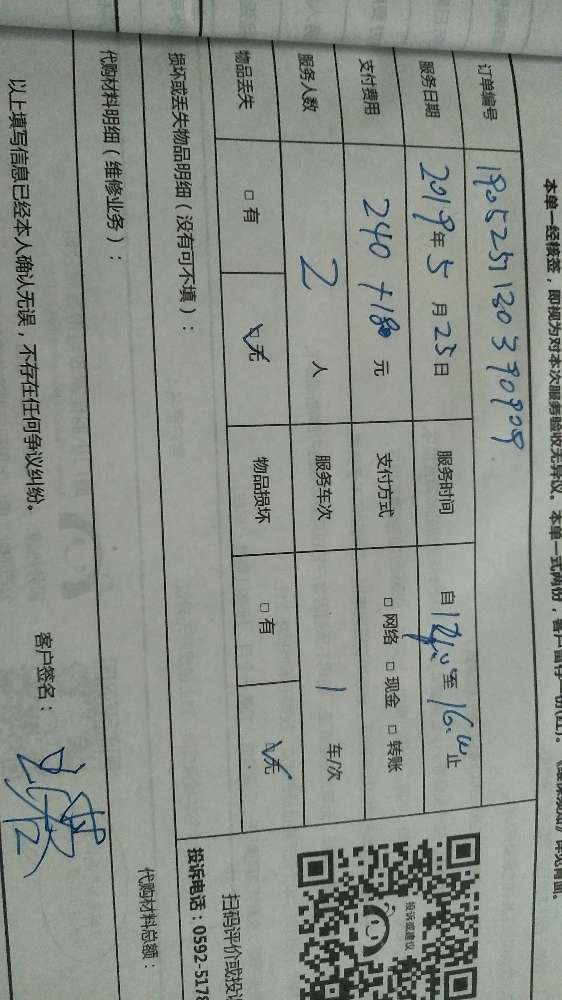 本单一经核签，即视为对本次服务验收无异议。本单一式两份，客户留存一份(红)。
订单编号 190525120390909
服务日期 2019年5月25日 服务时间 自 至16:00止
支付费用 240+180元 支付方式 □网络 □现金 □转账
服务人数 2人 服务车次 1 车/次
物品丢失 □有 ☑无 物品损坏 □有 ☑无
损坏或丢失物品明细（没有可不填）：
代购材料明细（维修业务）：
代购材料总额：
以上填写信息已经本人确认无误，不存在任何争议纠纷。
客户签名：
投诉或建议
扫码评价或投诉
投诉电话：0592-5178